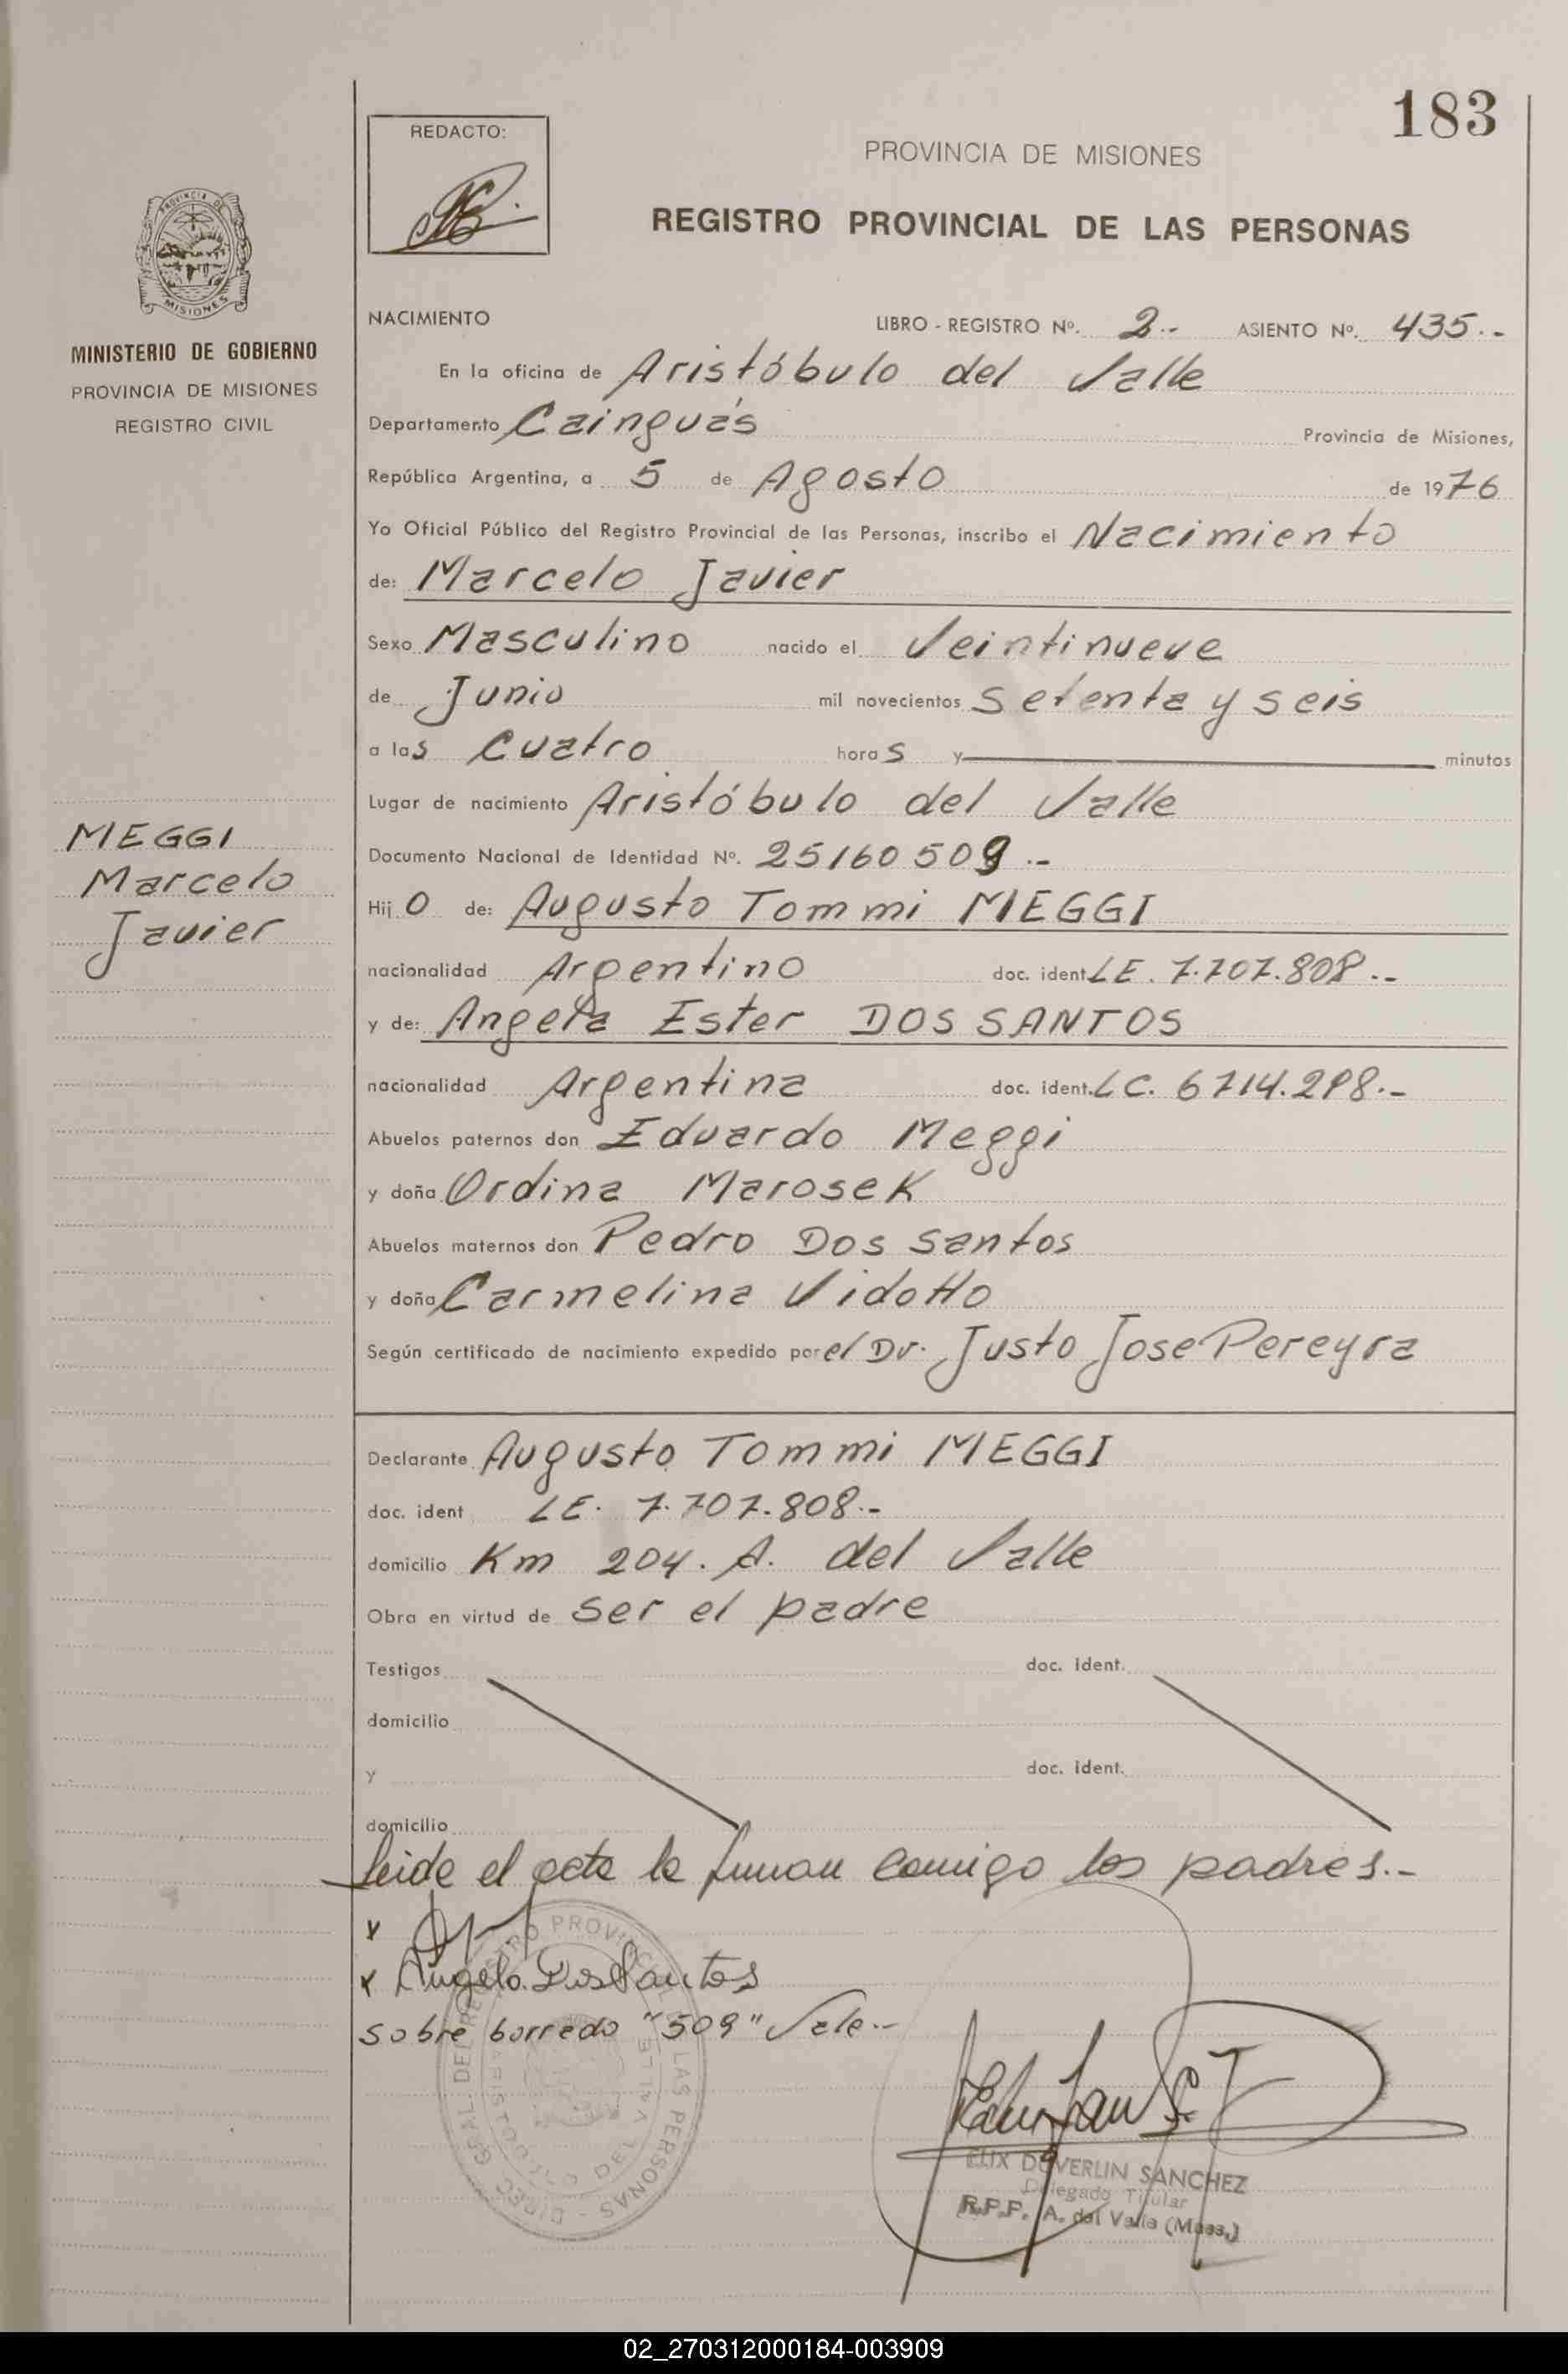 183
REDACTO:
PROVINCIA DE MISIONES
REGISTRO PROVINCIAL DE LAS PERSONAS
MINISTERIO DE GOBIERNO
PROVINCIA DE MISIONES
REGISTRO CIVIL
NACIMIENTO LIBRO - REGISTRO Nº. 2.- ASIENTO Nº. 435.-
En la oficina de Aristóbulo del Valle
Departamento Cainguás Provincia de Misiones,
República Argentina, a 5 de Agosto de 1976
Yo Oficial Público del Registro Provincial de las Personas, inscribo el Nacimiento
de: Marcelo Javier
Sexo Masculino nacido el Veintinueve
de Junio mil novecientos setenta y seis
a las cuatro horas y minutos
Lugar de nacimiento Aristóbulo del Valle
MEGGI
Marcelo
Javier
Documento Nacional de Identidad Nº. 25160509.-
Hijo de: Augusto Tommi MEGGI
nacionalidad Argentino doc. ident. LE. 7.707.808.-
y de: Angela Ester DOS SANTOS
nacionalidad Argentina doc. ident. LC. 6714.298.-
Abuelos paternos don Eduardo Meggi
y doña Ordina Marosek
Abuelos maternos don Pedro Dos Santos
y doña Carmelina Vidotto
Según certificado de nacimiento expedido por el Dr. Justo Jose Pereyra
Declarante Augusto Tommi MEGGI
doc. ident LE. 7.707.808.-
domicilio Km 204. A. del Valle
Obra en virtud de ser el padre
Testigos doc. ident.
domicilio
y doc. ident.
domicilio
leida el acta la firman conmigo los padres.-
x
x Angela Dos Santos
sobre borrado "509" Vale.-
ELIX DUVERLIN SANCHEZ
Delegado Titular
R.P.P. A. del Valle (Mnes.)
02_270312000184-003909